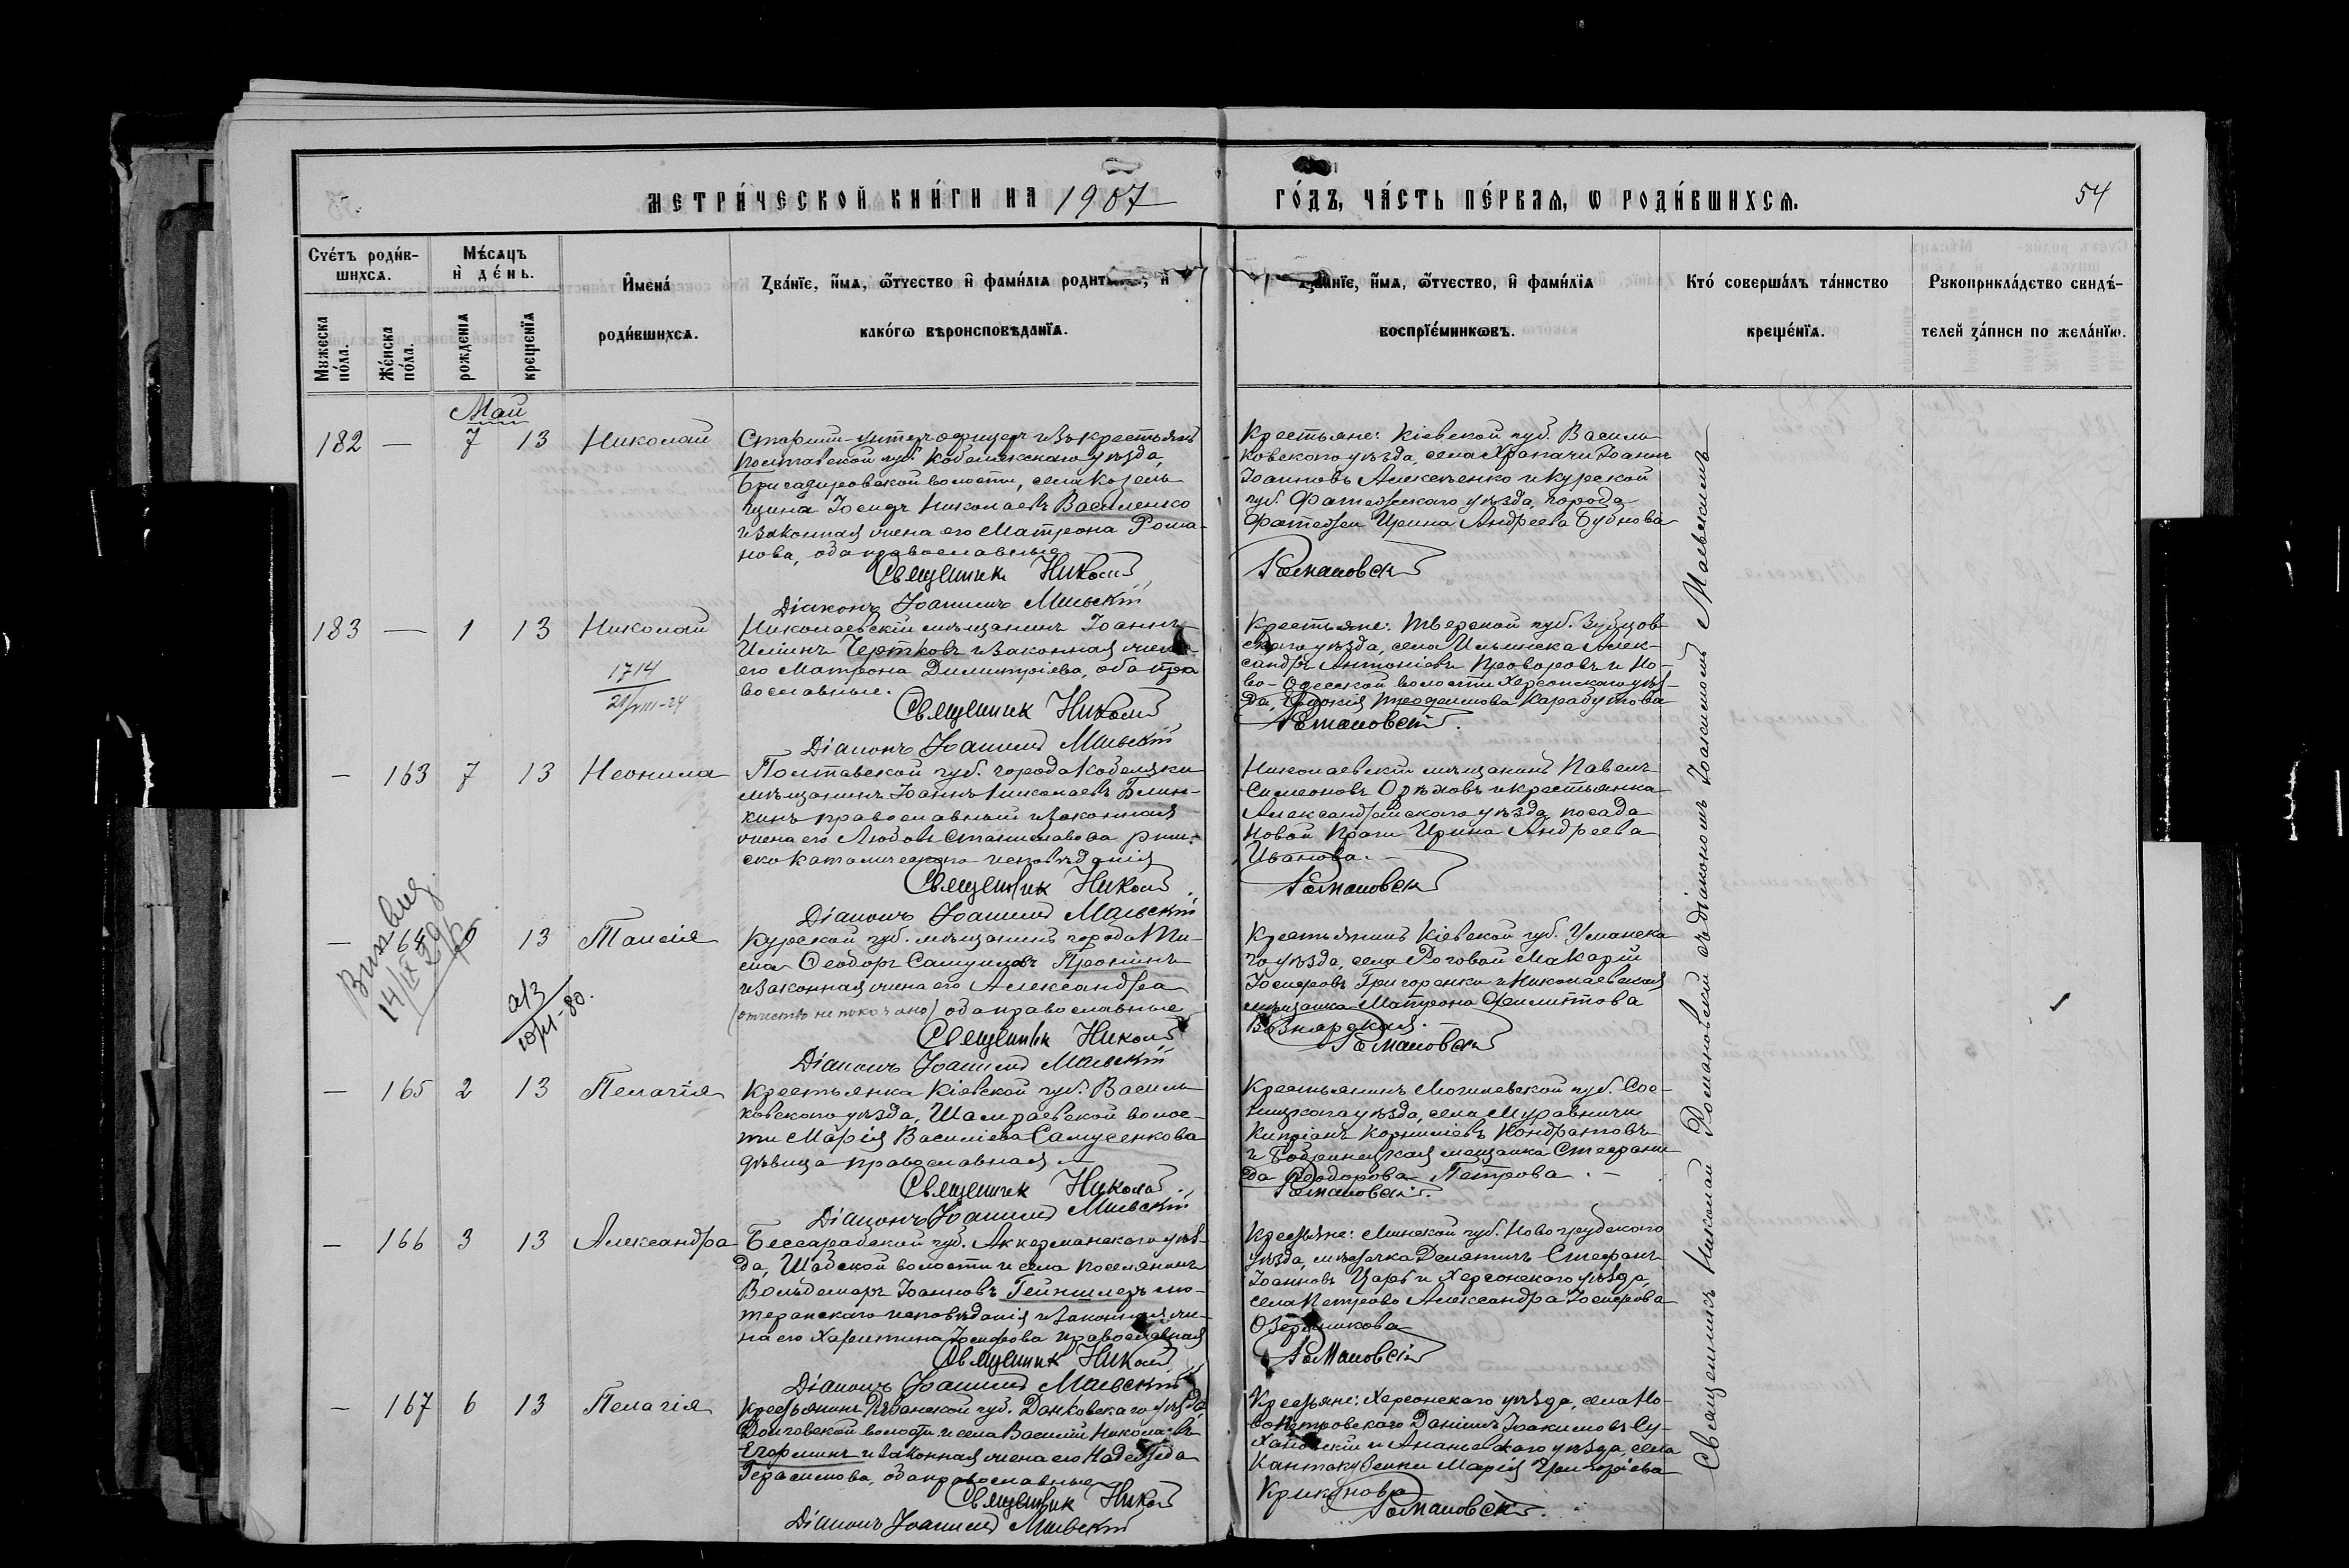 МЕТРИ́ЧЕСКОЙ КНИ́ГИ НА 1907
ГО́ДЪ, ЧА́СТЬ ПЕ́РВАѦ, Ѡ РОДИ́ВШИХСѦ.
54
Счéтъ роди́в-
шихсѧ.
Мꙋжеска по́ла.
Же́нска по́ла.
Мѣ́сѧцъ
и҆ де́нь.
рожденїѧ
крещенїѧ
И҆мена́
роди́вшихсѧ.
Зва́нїе, и҆́мѧ, ѻ҆́тчество и҆ фами́лїѧ родит и҆
како́гѡ вѣроисповѣ́данїѧ.
Зва́нїе, и҆́мѧ, ѻ҆́тчество, и҆ фами́лїѧ
воспрїе́мникѡвъ.
Кто́ соверша́лъ та́инство
креще́нїѧ.
Рꙋкоприкла́дство свидѣ́-
телей за́писи по жела́нїю.
Май
182 — 7 13 Николай
Старший унтеръ офицеръ изъ крестьянъ
Полтавской губ. Кобелякскаго уѣзда,
Бригадировской волости, села Козель-
щина Іосифъ Николаевъ Василенко
и законная жена его Матрона Рома-
нова, оба православные
Священникъ Николай
Діаконъ Іоанникій Маевскій
Крестьяне: Кіевской губ. Василь-
ковскаго уѣзда, села Храпачи Іоаннъ
Іоанновъ Алексѣенко и Курской
губ. Фатежскаго уѣзда, города
Фатежа Ирина Андреева Бубнова
Романовскій
183 — 1 13 Николай
1714
21/VIII-24
Николаевскій мѣщанинъ Іоаннъ
Ильинъ Чертковъ и законная жена
его Матрона Димитріева, оба пра-
вославные.
Священникъ Николай
Діаконъ Іоанникій Маевскій
Крестьяне: Тверской губ. Зубцов-
скаго уѣзда, села Ильинска Алек-
сандръ Антоніевъ Прохоровъ и Но-
во-Одесской волости Херсонскаго уѣз-
да, Евдокія Тимофеева Карабутова
Романовскій.
— 163 7 13 Неонила
Полтавской губ. города Кобеляки
мѣщанинъ Іоаннъ Николаевъ Блин-
кинъ православный и законная
жена его Любовь Станиславова рим-
ско католическаго исповѣданія
Священникъ Николай
Діаконъ Іоанникій Маевскій
Николаевскій мѣщанинъ Павелъ
Симеоновъ Орѣховъ и крестьянка
Александрійскаго уѣзда, посада
Новой Праги Ирина Андреева
Иванова.
Романовскій
— 164 6 13 Таисія
14/IX 29
а/з
10/VI-80.
Курской губ. мѣщанинъ города Ти-
ма Ѳеодоръ Самуиловъ Пронинъ
и законная жена его Александра
(отчество не показано) оба православные
Священникъ Николай
Діаконъ Іоанникій Маевскій
Крестьянинъ Кіевской губ. Уманска-
го уѣзда, села Роговой Макарій
Іосифовъ Григоренко и Николаевская
мѣщанка Матрона Филиппова
Вознярская.
Романовскій
— 165 2 13 Пелагія
Крестьянка Кіевской губ. Василь-
ковскаго уѣзда, Шамраевской волос-
ти Марія Василіева Самусенкова
дѣвица православная.
Священникъ Николай
Діаконъ Іоанникій Маевскій
Крестьянинъ Могилевской губ. Сѣн-
ницкаго уѣзда, села Муравничи
Кипріанъ Корниліевъ Кондратовъ
и Бобринецкая мещанка Стефани-
да Ѳеодорова Петрова.
Романовскій.
— 166 3 13 Александра
Бессарабской губ. Аккерманскаго уѣз-
да, Шабской волости и села поселянинъ
Вольдемаръ Іоанновъ Гейншлеръ лю-
теранскаго исповѣданія и законная же-
на его Харитина Іосифова православная
Священникъ Николай
Діаконъ Іоанникій Маевскій
Крестьяне: Минской губ. Новогрудскаго
уѣзда, мѣстечка Делятичъ Стефанъ
Іоанновъ Царь и Херсонскаго уѣзда,
села Петрово Александра Іосифова
Озерянникова
Романовскій
— 167 6 13 Пелагія
Крестьянинъ Рязанской губ. Данковскаго уѣзда
Долговской волости и села Василій Николаевъ
Егоркинъ и законная жена его Надежда
Герасимова, оба православные
Священникъ Николай
Діаконъ Іоанникій Маевскій
Крестьяне: Херсонскаго уѣзда, села Но-
вопетровскаго Даніилъ Іоакимовъ Су-
хановскій и Ананьевскаго уѣзда, села
Кантакузенки Марія Григоріева
Крикунова
Романовскій.
Священникъ Николай Романовскій съ діакономъ Іоанникіемъ Маевскимъ